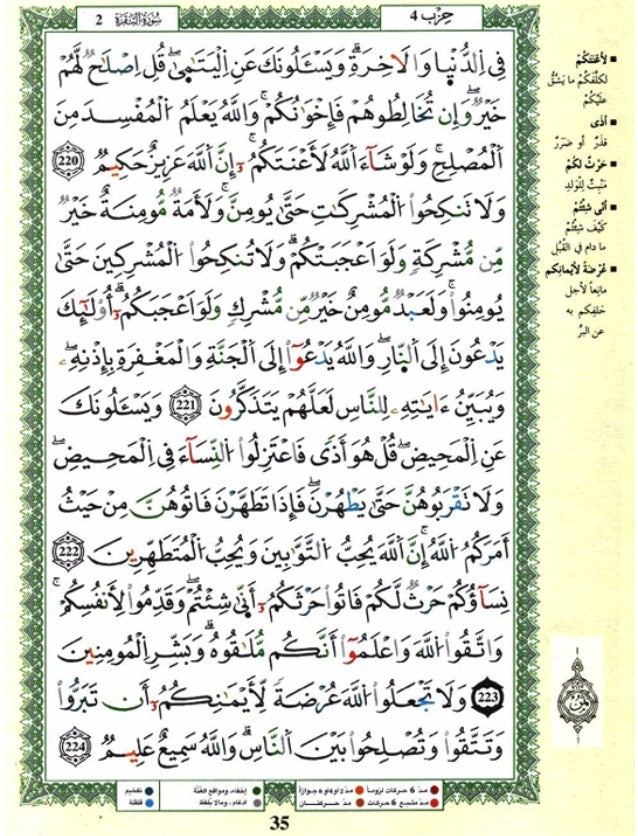 سُورَةُ البَقَرَةِ 2
حِزْب 4
فِے اِ۬لدُّنْيا وَالَاخِرَةِۖ وَيَسْـَٔلُونَكَ عَنِ اِ۬لْيَتَٰم۪ىٰۖ قُلِ اِصْلَٰحٞ لَّهُمْ
خَيْرٞۖ وَإِن تُخَالِطُوهُمْ فَإِخْوَٰنُكُمْۖ وَاللَّهُ يَعْلَمُ اُ۬لْمُفْسِدَ مِنَ
اَ۬لْمُصْلِحِۖ وَلَوْ شَآءَ اَ۬للَّهُ لَأَعْنَتَكُمُۥٓۖ إِنَّ اَ۬للَّهَ عَزِيزٌ حَكِيمٞ 220
وَلَا تَنكِحُوا۟ اُ۬لْمُشْرِكَٰتِ حَتَّىٰ يُومِنَّۖ وَلَأَمَةٞ مُّومِنَةٌ خَيْرٞ
مِّن مُّشْرِكَةٖ وَلَوَ اَعْجَبَتْكُمْۖ وَلَا تُنكِحُوا۟ اُ۬لْمُشْرِكِينَ حَتَّىٰ
يُومِنُوا۟ۖ وَلَعَبْدٞ مُّومِنٌ خَيْرٞ مِّن مُّشْرِكٖ وَلَوَ اَعْجَبَكُمُۥٓۖ أُو۟لَٰٓئِكَ
يَدْعُونَ إِلَى اَ۬لنّ۪ارِۖ وَاللَّهُ يَدْعُوٓا۟ إِلَى اَ۬لْجَنَّةِ وَالْمَغْفِرَةِ بِإِذْنِهِۦۖ
وَيُبَيِّنُ ءَايَٰتِهِۦ لِلنَّاسِ لَعَلَّهُمْ يَتَذَكَّرُونَ 221 وَيَسْـَٔلُونَكَ
عَنِ اِ۬لْمَحِيضِۖ قُلْ هُوَ أَذىٗ فَاعْتَزِلُوا۟ اُ۬لنِّسَآءَ فِے اِ۬لْمَحِيضِ
وَلَا تَقْرَبُوهُنَّ حَتَّىٰ يَطْهُرْنَۖ فَإِذَا تَطَهَّرْنَ فَاتُوهُنَّ مِنْ حَيْثُ
أَمَرَكُمُ اُ۬للَّهُۖ إِنَّ اَ۬للَّهَ يُحِبُّ اُ۬لتَّوَّٰبِينَ وَيُحِبُّ اُ۬لْمُتَطَهِّرِينَ 222
نِسَآؤُكُمْ حَرْثٞ لَّكُمْ فَاتُوا۟ حَرْثَكُمُۥٓ أَنّ۪ىٰ شِئْتُمْۖ وَقَدِّمُوا۟ لِأَنفُسِكُمْۖ
وَاتَّقُوا۟ اُ۬للَّهَ وَاعْلَمُوٓا۟ أَنَّكُم مُّلَٰقُوهُۖ وَبَشِّرِ اِ۬لْمُومِنِينَ
223 وَلَا تَجْعَلُوا۟ اُ۬للَّهَ عُرْضَةٗ لِّأَيْمَٰنِكُمُۥٓ أَن تَبَرُّوا۟
وَتَتَّقُوا۟ وَتُصْلِحُوا۟ بَيْنَ اَ۬لنَّاسِۖ وَاللَّهُ سَمِيعٌ عَلِيمٞ 224
لأَعْنَتَكُمْ
لكلَّفَكُمْ ما يَشُقُّ
عليْكُمْ
أذًى
قَذَرٌ أو ضَرَرٌ
حَرْثٌ لَكُمْ
مَنْبِتٌ لِلْوَلَدِ
أنّى شِئْتُمْ
كَيْفَ شِئْتُمْ
ما دام في القُبُلِ
عُرْضَةً لأيمانِكم
مانِعاً لأجل
حَلِفِكم به
عن البِرِّ
ثمن
مدّ 6 حركات لزوماً
مدّ 2 أو 4 أو 6 جوازاً
إخفاء، ومواقع الغُنَّة
تفخيم
مدّ مشبع 6 حركات
مدّ حركتان
ادغام، ومالا يُلفظ
قلقلة
35